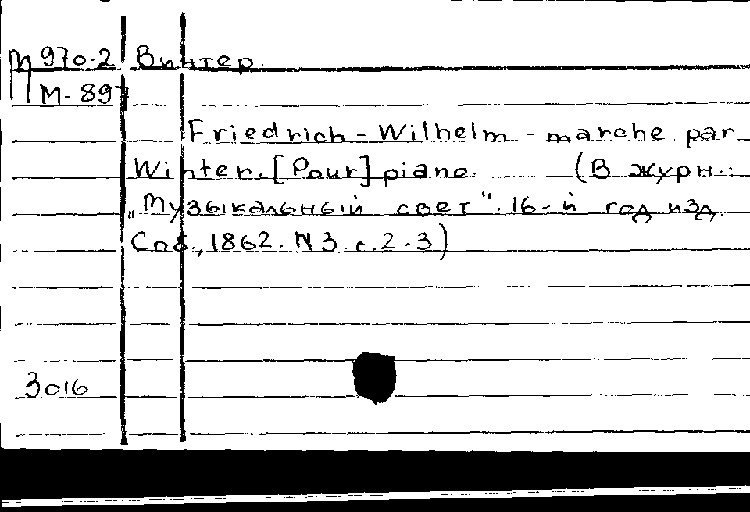 М 970-2 Винтер.
М-897
Friedrich-Wilhelm-marche par
Winter. [Pour] piano. (В журн.:
„Музыкальный свет". 16-й год изд.
Спб., 1862. N3 с. 2-3)
3016